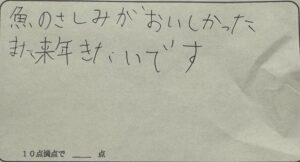 魚のさしみがおいしかった
また来年きたいです
10点満点で ____ 点